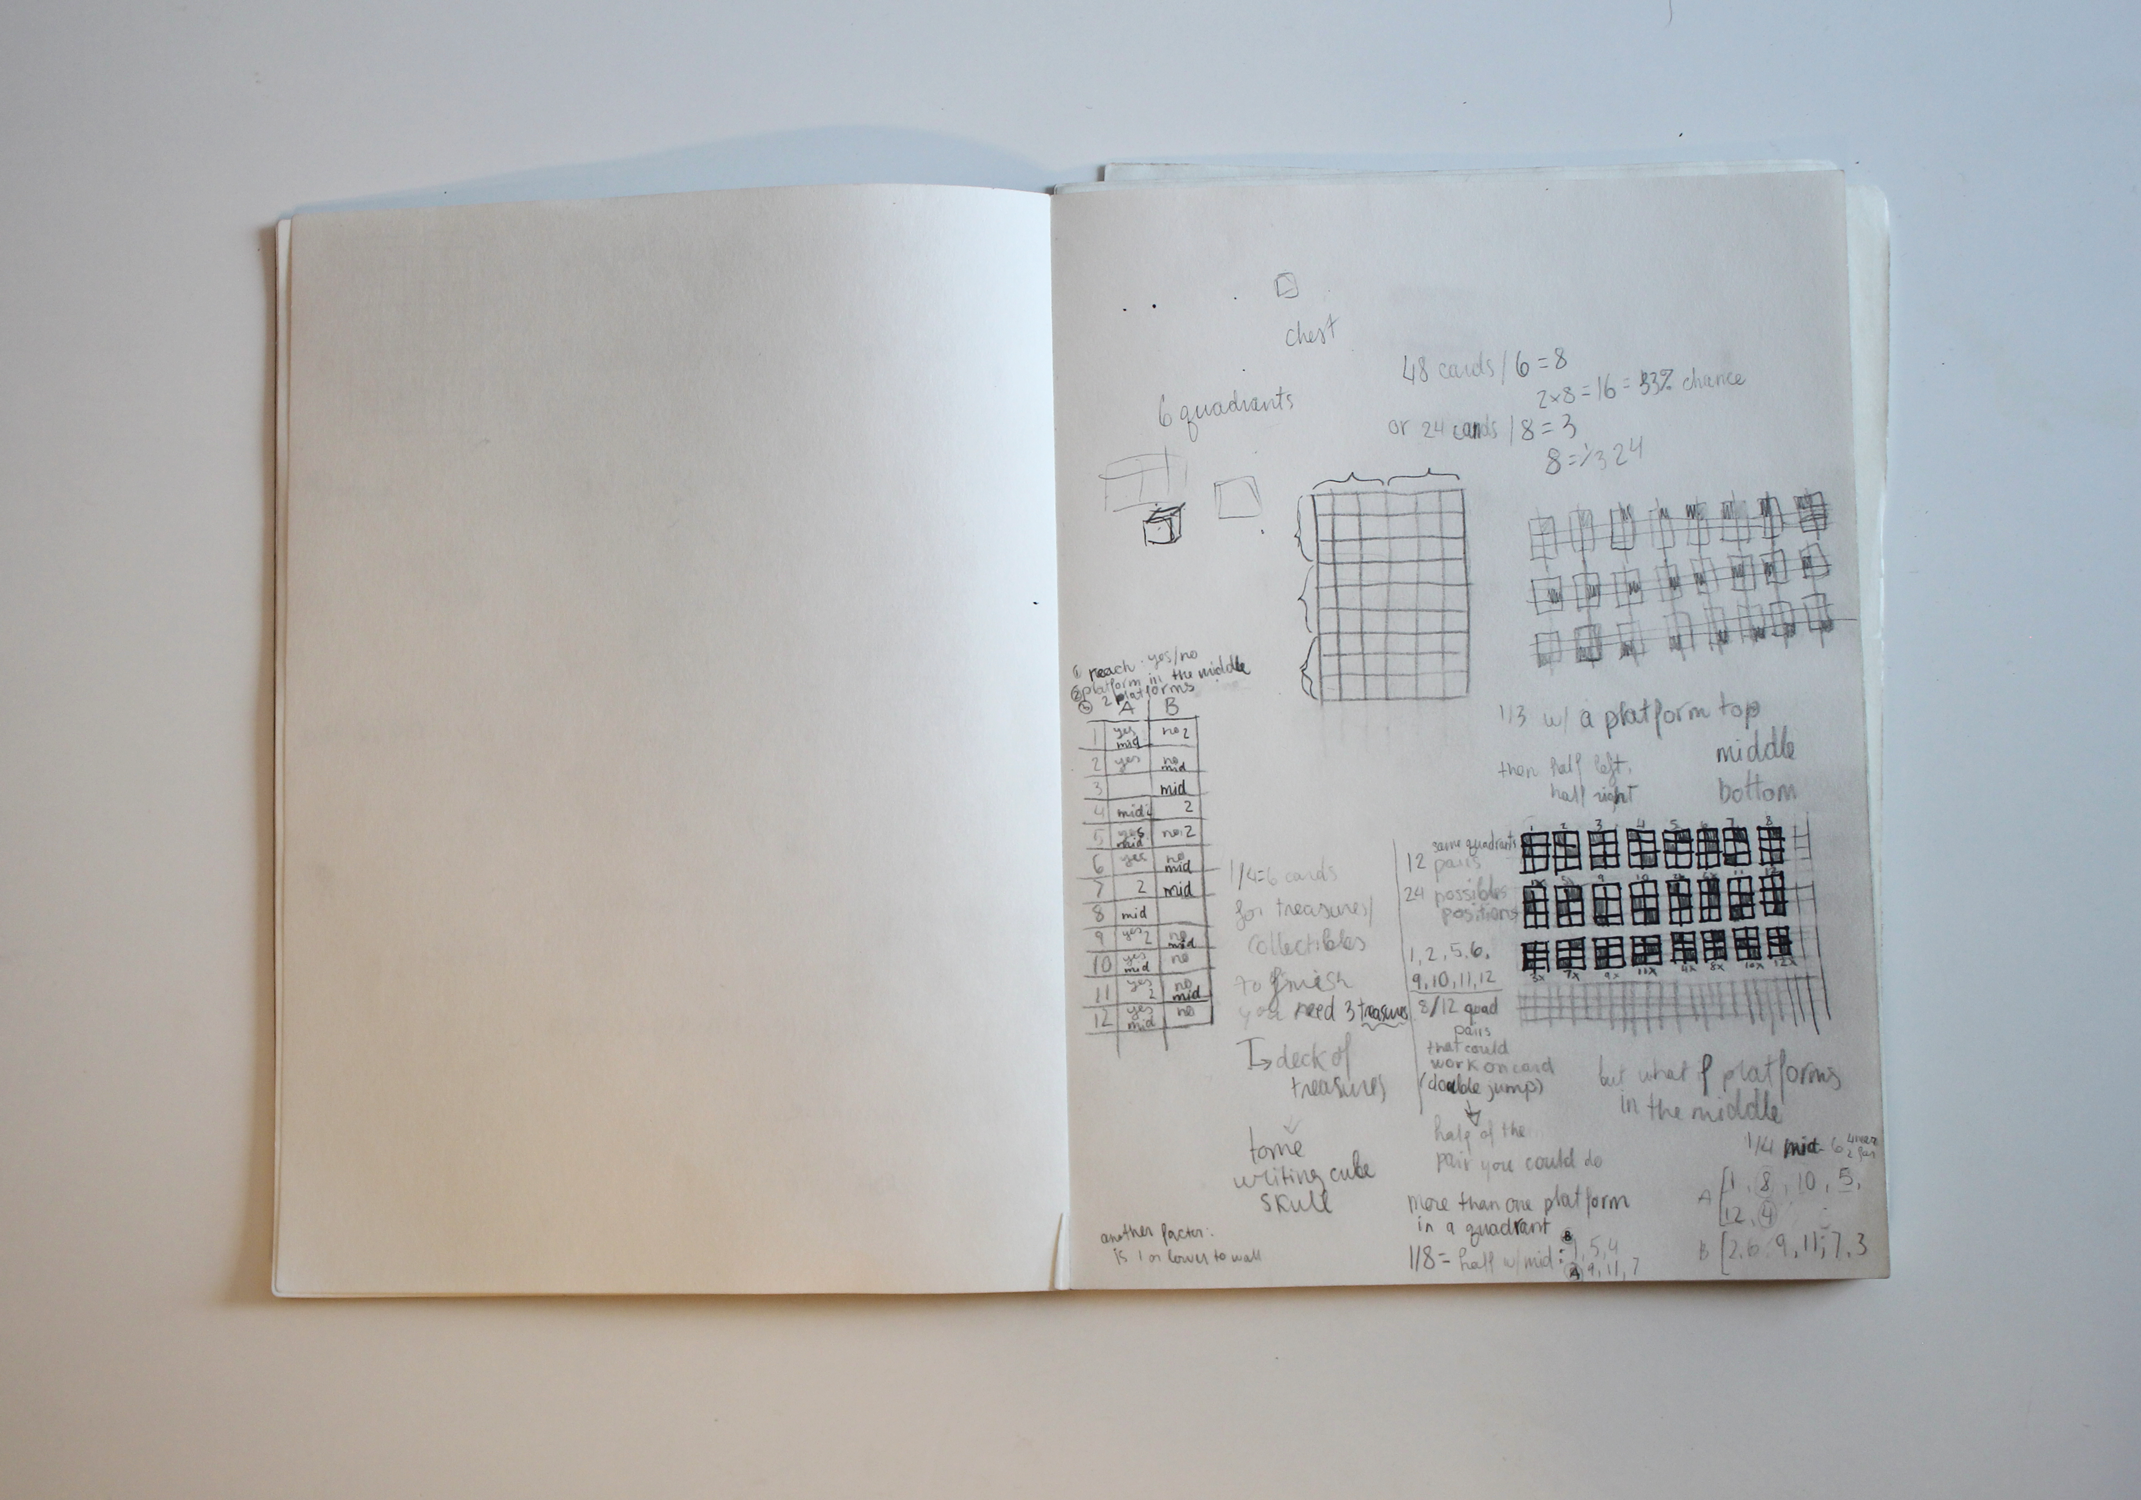 chest
48 cards / 6 = 8
2x8=16 = 33% chance
or 24 cards / 8 = 3
8 = 1/3 24
6 quadrants
① reach: yes/no
② platform in the middle
③ 2 platforms
A B
1 yes mid no 2
2 yes no mid
3 mid
4 mid 2
5 yes mid no 2
6 yes no mid
7 2 mid
8 mid
9 yes 2 no mid
10 yes mid no
11 yes 2 no mid
12 yes mid no
1/3 w/ a platform top
middle
bottom
then half left,
half right
1 2 3 4 5 6 7 8
same quadrants
12 pairs
24 possible
positions
1, 2, 5, 6,
9, 10, 11, 12
8/12 quad
pairs
that could
work on card
(double jump)
half of the
pair you could do
1/4=6 cards
for treasures/
collectibles
to finish
you need 3 treasures
deck of
treasures
tome
writing cube
skull
another factor:
is 1 or lower to wall
more than one platform
in a quadrant
1/8 = half w/ mid: B 1, 5, 4
A 9, 11, 7
but what if platforms
in the middle
1/4 mid 6
A [1, 8, 10, 5,
12, 4
B [2, 6, 9, 11, 7, 3